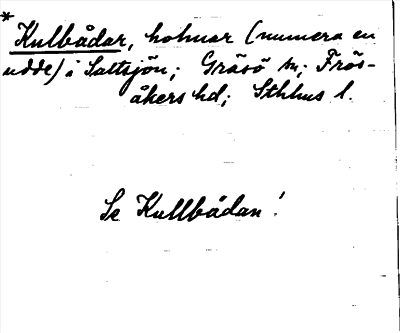 *
Kulbådar, holmar (numera en
udde) i Saltsjön; Gräsö sn; Frös-
åkers hd; Sthlms l.
Se Kullbådan!